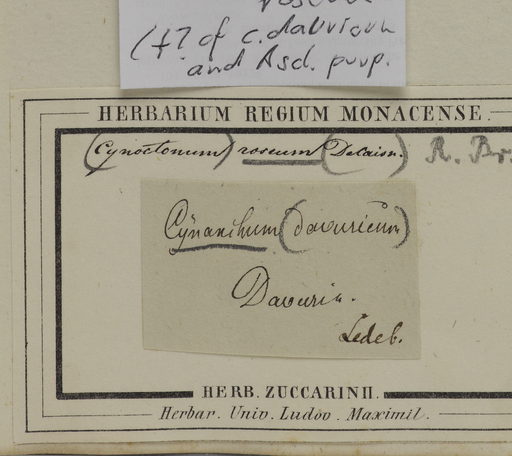 (f? of C. dauricum
and Asd. purp.
HERBARIUM REGIUM MONACENSE.
(Cynoctonum) roseum (Decaisn.) R. Br.
Cynanchum (davuricum)
Davuria.
Ledeb.
HERB. ZUCCARINII.
Herbar. Univ. Ludov. Maximil.